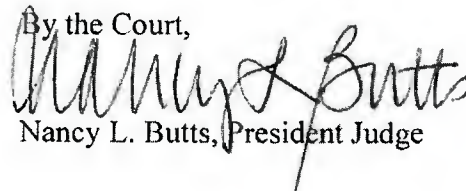 By the Court,
Nancy L Butts
Nancy L. Butts, President Judge